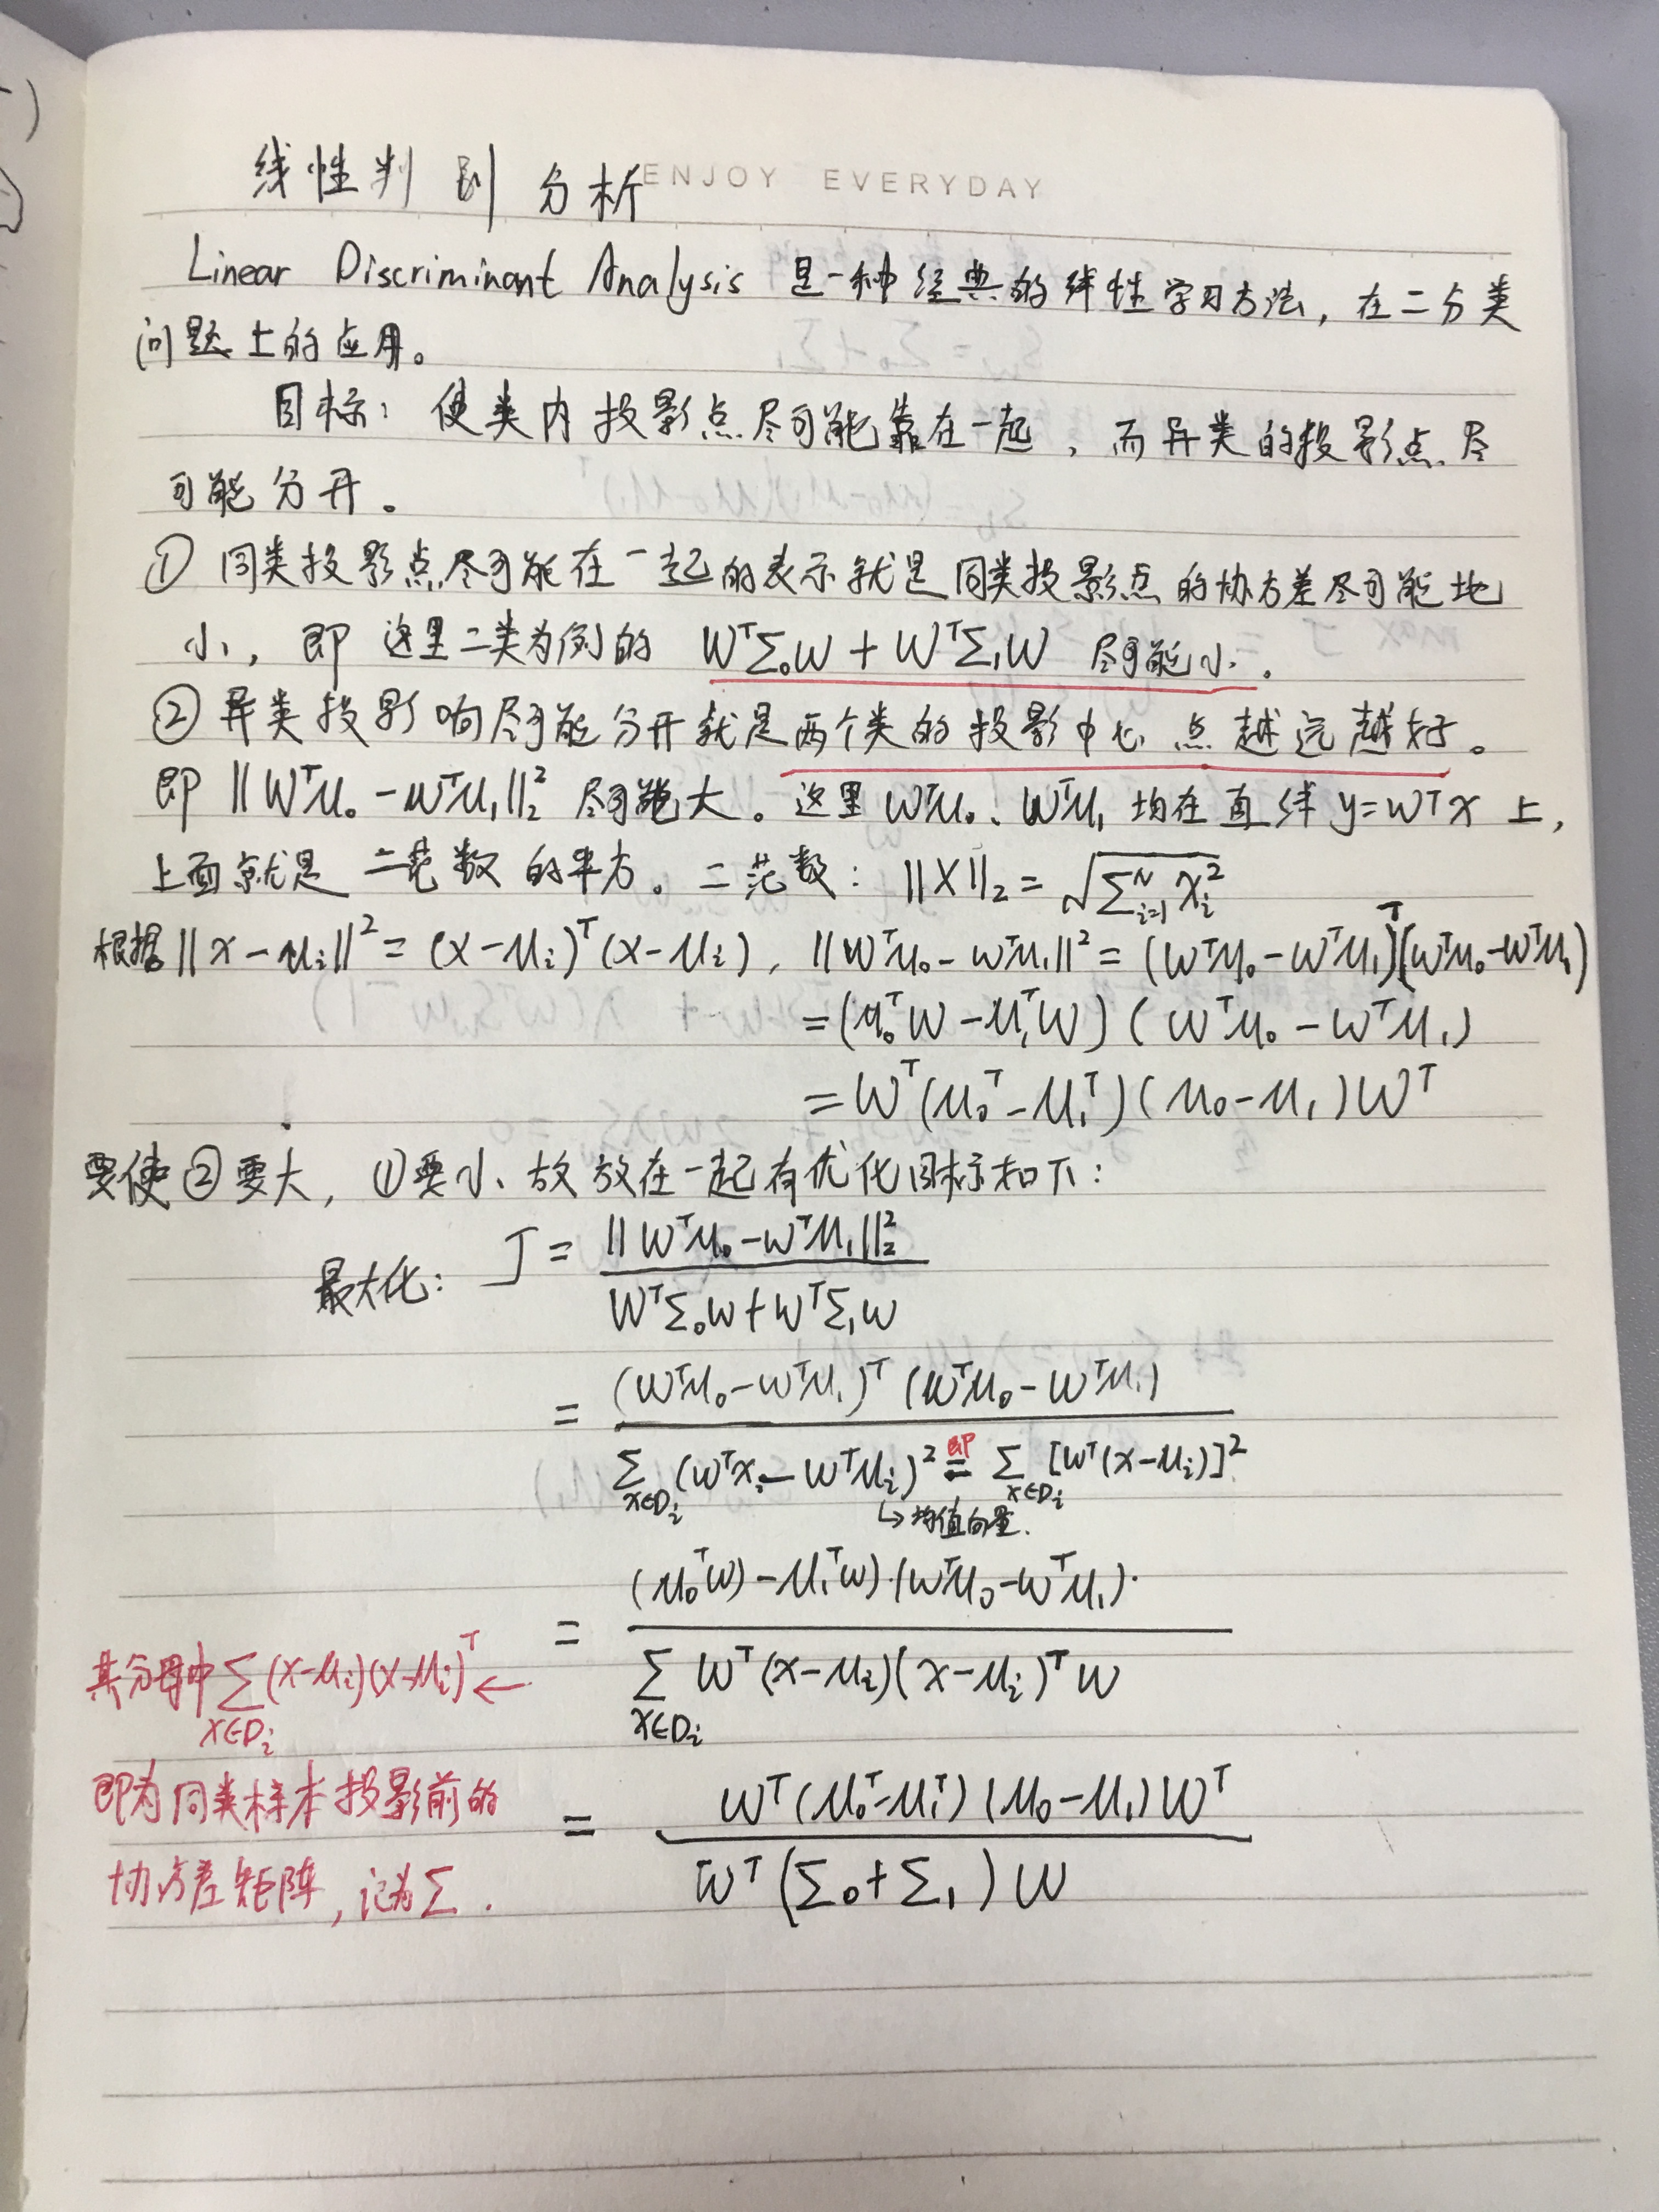 ENJOY EVERYDAY
线性判别分析
Linear Discriminant Analysis 是一种经典的线性学习方法，在二分类
问题上的应用。
目标：使类内投影点尽可能靠在一起，而异类的投影点尽
可能分开。
① 同类投影点尽可能在一起的表示就是同类投影点的协方差尽可能地
小，即 这里二类为例的 WᵀΣ₀W + WᵀΣ₁W 尽可能小。
② 异类投影响尽可能分开就是两个类的投影中心点越远越好。
即 ||Wᵀμ₀ - Wᵀμ₁||₂² 尽可能大。这里 Wᵀμ₀、Wᵀμ₁ 均在直线 y=Wᵀx 上，
上面就是二范数的平方。二范数：||X||₂ = √(Σᵢ₌₁ᴺ xᵢ²)
根据 ||x-μᵢ||² = (x-μᵢ)ᵀ(x-μᵢ)，||Wᵀμ₀ - Wᵀμ₁||² = (Wᵀμ₀ - Wᵀμ₁)ᵀ(Wᵀμ₀ - Wᵀμ₁)
= (μ₀ᵀW - μ₁ᵀW)(Wᵀμ₀ - Wᵀμ₁)
= Wᵀ(μ₀ᵀ - μ₁ᵀ)(μ₀ - μ₁)Wᵀ
要使②要大，①要小、故放在一起有优化目标如下：
最大化： J = ||Wᵀμ₀ - Wᵀμ₁||₂²
WᵀΣ₀W + WᵀΣ₁W
= (Wᵀμ₀ - Wᵀμ₁)ᵀ(Wᵀμ₀ - Wᵀμ₁)
Σ (Wᵀxᵢ - Wᵀμᵢ)² 即= Σ [Wᵀ(x-μᵢ)]²
x∈Dᵢ x∈Dᵢ
↳ 均值向量.
= (μ₀ᵀW) - μ₁ᵀW)·(Wᵀμ₀ - Wᵀμ₁)·
Σ Wᵀ(x-μᵢ)(x-μᵢ)ᵀW
x∈Dᵢ
其分母中 Σ (x-μᵢ)(x-μᵢ)ᵀ ←
x∈Dᵢ
即为同类样本投影前的
协方差矩阵，记为Σ.
= Wᵀ(μ₀ᵀ-μ₁ᵀ)(μ₀-μ₁)Wᵀ
Wᵀ(Σ₀+Σ₁)W